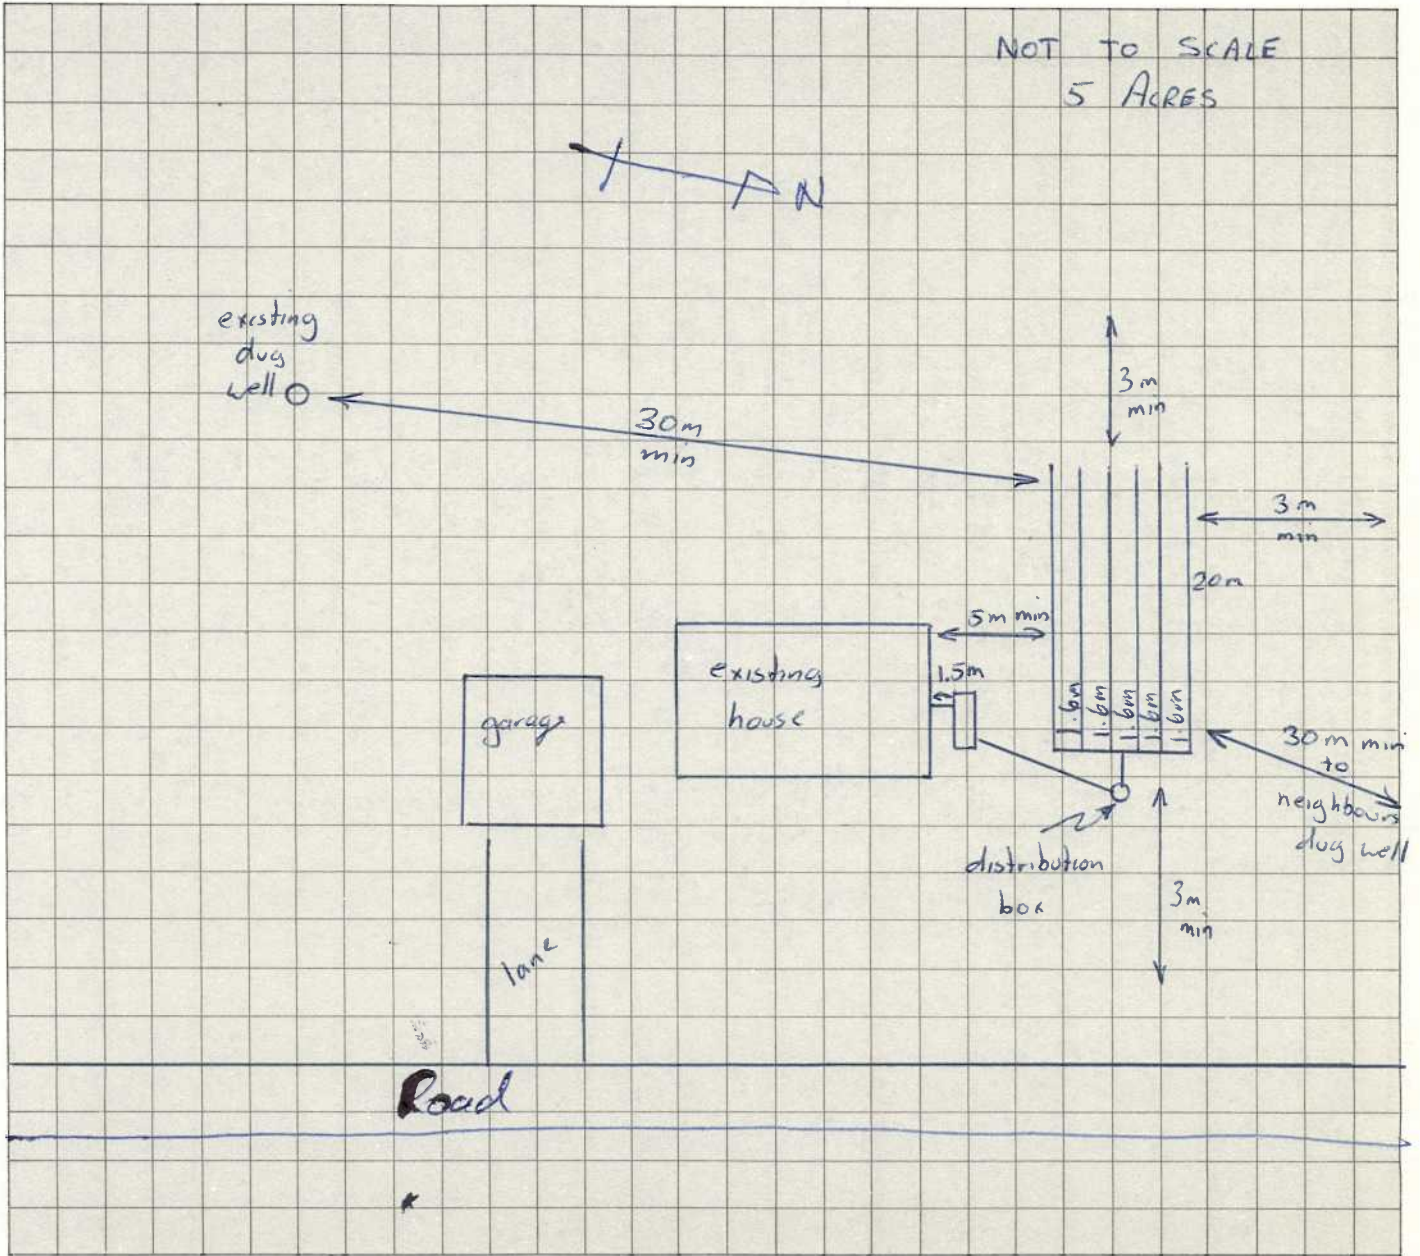 NOT TO SCALE
5 ACRES
N
existing
dug
well
30m
min
3m
min
3m
min
20m
5m min
1.5m
existing
house
garage
1.6m
1.6m
1.6m
1.6m
1.6m
30m min
to
neighbours
dug well
distribution
box
3m
min
lane
Road